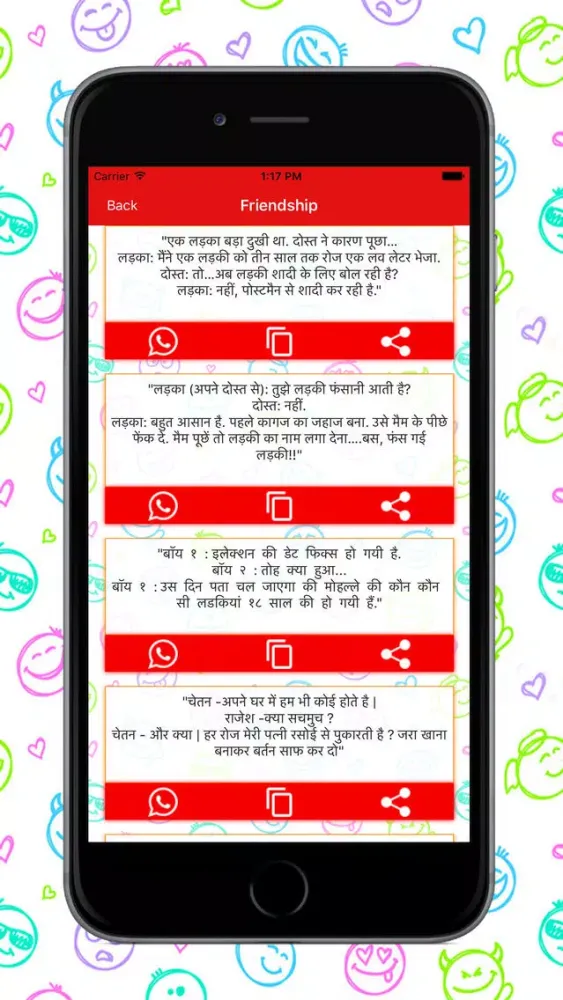 Carrier 1:17 PM
Back Friendship
"एक लड़का बड़ा दुखी था. दोस्त ने कारण पूछा...
लड़का: मैंने एक लड़की को तीन साल तक रोज एक लव लेटर भेजा.
दोस्त: तो...अब लड़की शादी के लिए बोल रही है?
लड़का: नहीं, पोस्टमैन से शादी कर रही है."
"लड़का (अपने दोस्त से): तुझे लड़की फंसानी आती है?
दोस्त: नहीं.
लड़का: बहुत आसान है. पहले कागज का जहाज बना. उसे मैम के पीछे
फेंक दे. मैम पूछें तो लड़की का नाम लगा देना....बस, फंस गई
लड़की!!"
"बॉय १ : इलेक्शन की डेट फिक्स हो गयी है.
बॉय २ : तोह क्या हुआ...
बॉय १ : उस दिन पता चल जाएगा की मोहल्ले की कौन कौन
सी लडकियां १८ साल की हो गयी हैं."
"चेतन -अपने घर में हम भी कोई होते है |
राजेश -क्या सचमुच ?
चेतन - और क्या | हर रोज मेरी पत्नी रसोई से पुकारती है ? जरा खाना
बनाकर बर्तन साफ कर दो"